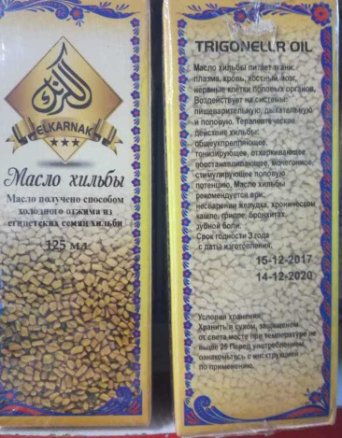 الكرنك
ELKARNAK
Масло хильбы
Масло получено способом
холодного отжима из
египетских семян хильби
125 мл
TRIGONELLR OIL
Масло хильбы питает ткани:
плазма, кровь, костный мозг,
нервные клетки половых органов.
Воздействует на системы:
пищеварительную, дыхательную
и половую. Терапевтическое
действие хильбы:
общеукрепляющее,
тонизирующее, отхаркивающее
восстанавливающее, мочегонное,
стимулирующее половую
потенцию. Масло хильбы
рекомендуется при:
несварении желудка, хроническом
кашле, гриппе, бронхитах,
зубной боли.
Срок годности 3 года
с даты изготовления.
15-12-2017
14-12-2020
Условия хранения:
Хранить в сухом, защищеном
от света месте при температуре не
выше 25 Перед употреблением
ознакомьтесь с инструкцией
по применению.